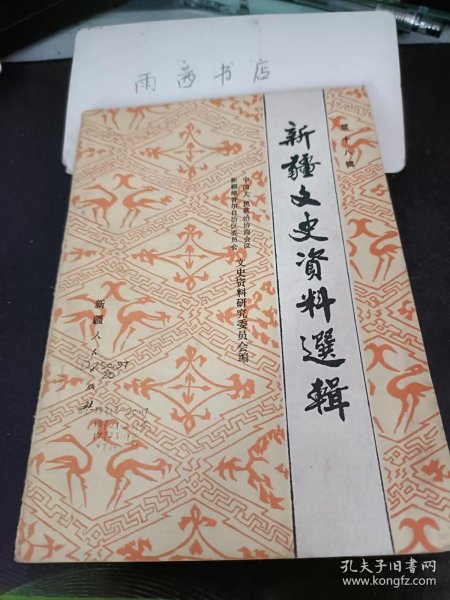 雨茜书店
第十八辑
新疆文史資料選輯
中国人民政治协商会议
新疆维吾尔自治区委员会
文史资料研究委员会编
新疆人民出版社
孔夫子旧书网
www.kongfz.com